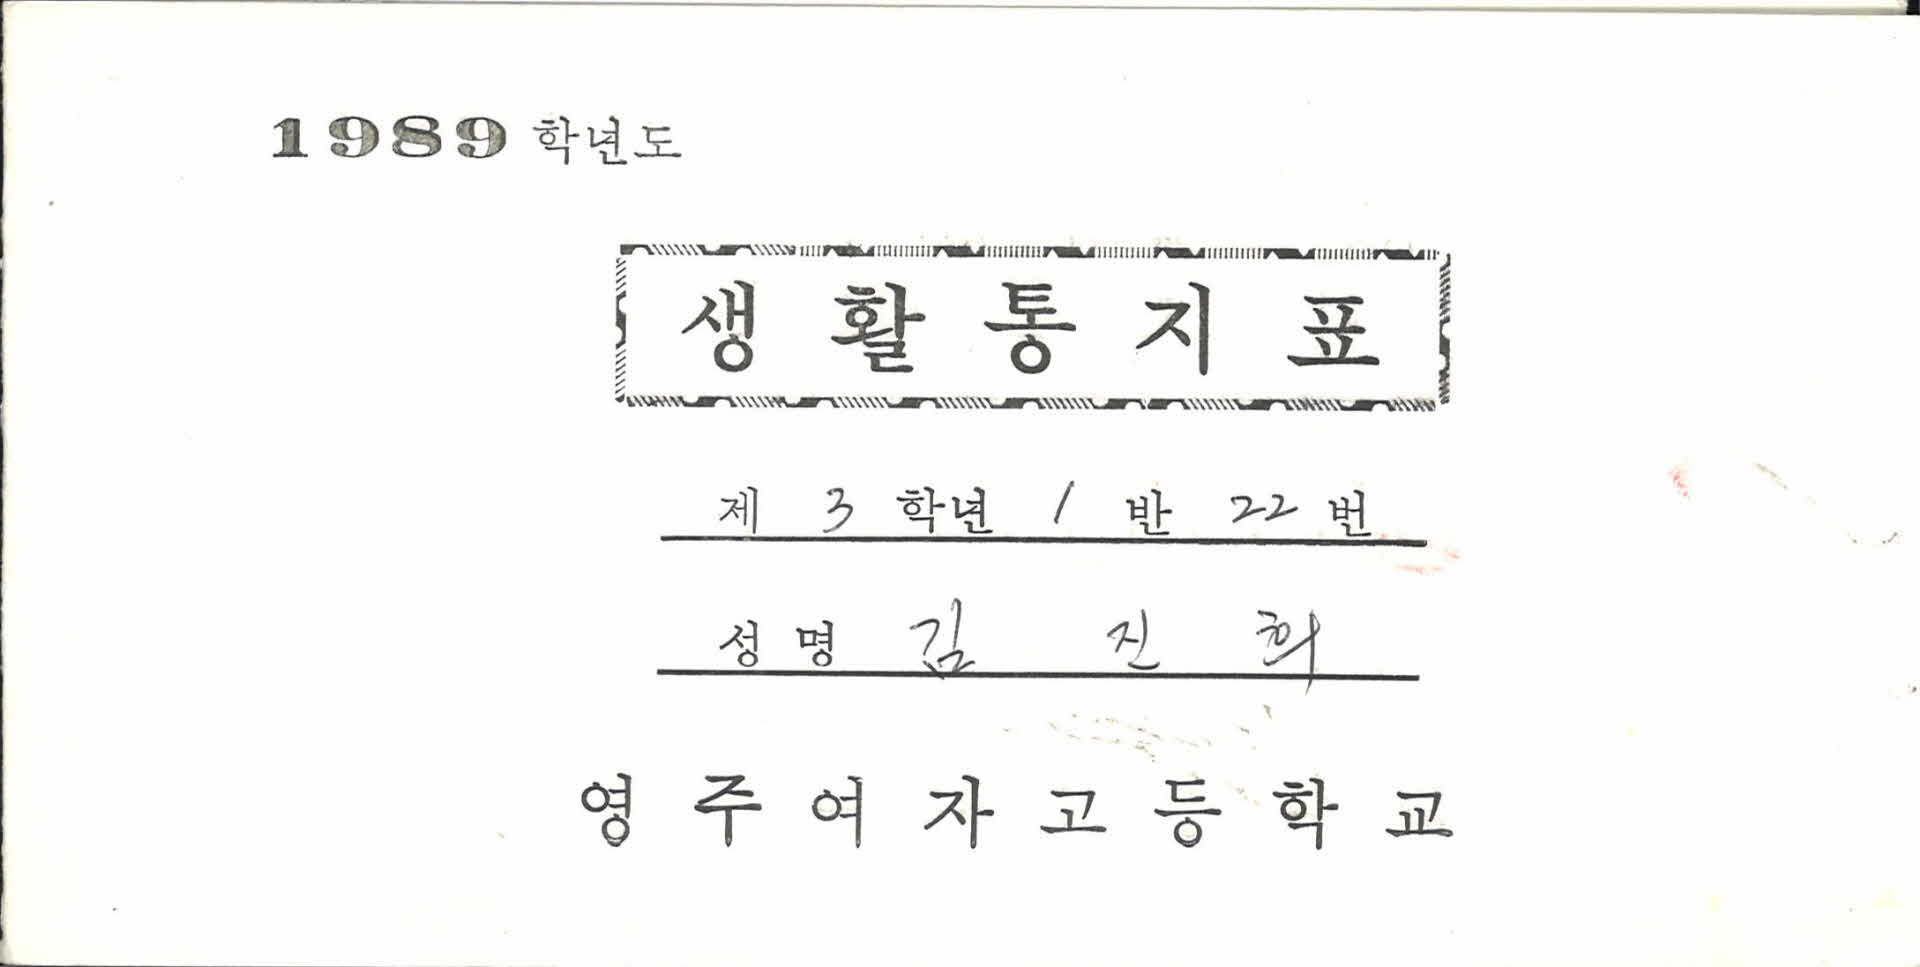 1989 학년도
생활통지표
제 3 학년 1 반 22 번
성명 김 진 희
영주여자고등학교